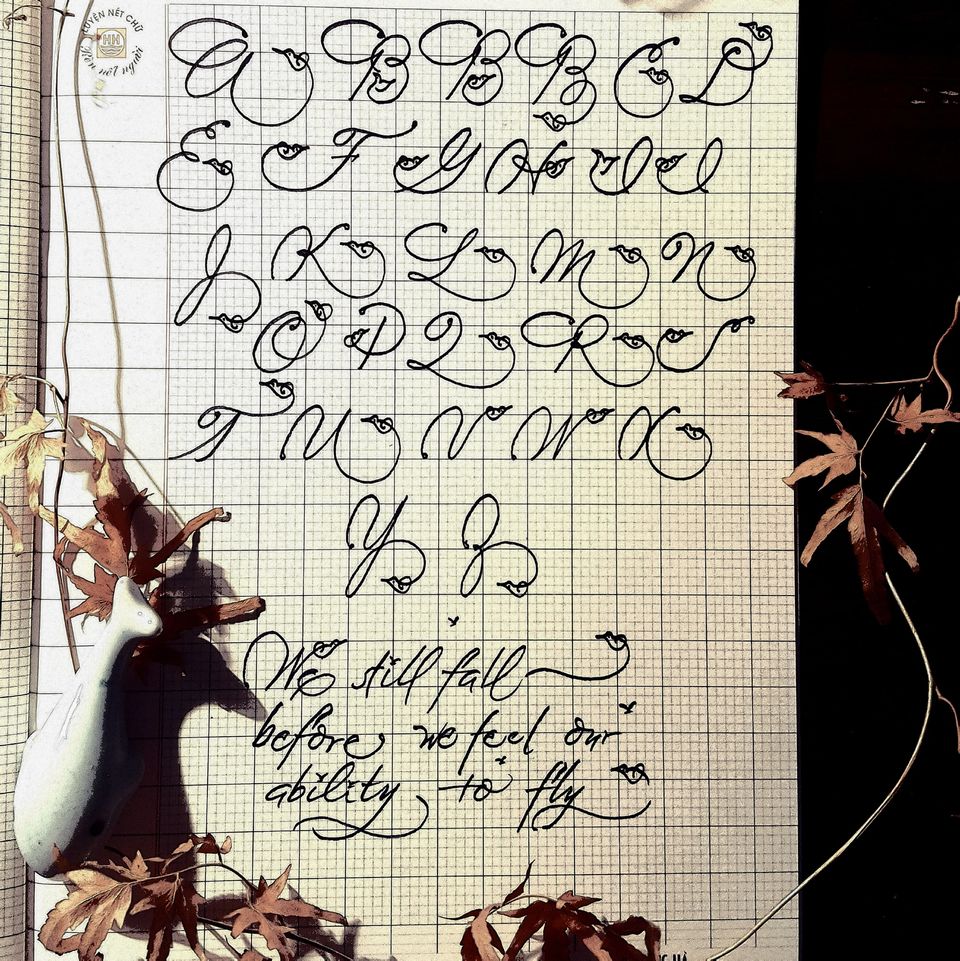 LUYỆN NÉT CHỮ
HH
Rèn nết người
A B B B C D
E F G H I I
J K L M N
O P Q R S
T U V W X
Y Z
We still fall
before we feel our
ability to fly